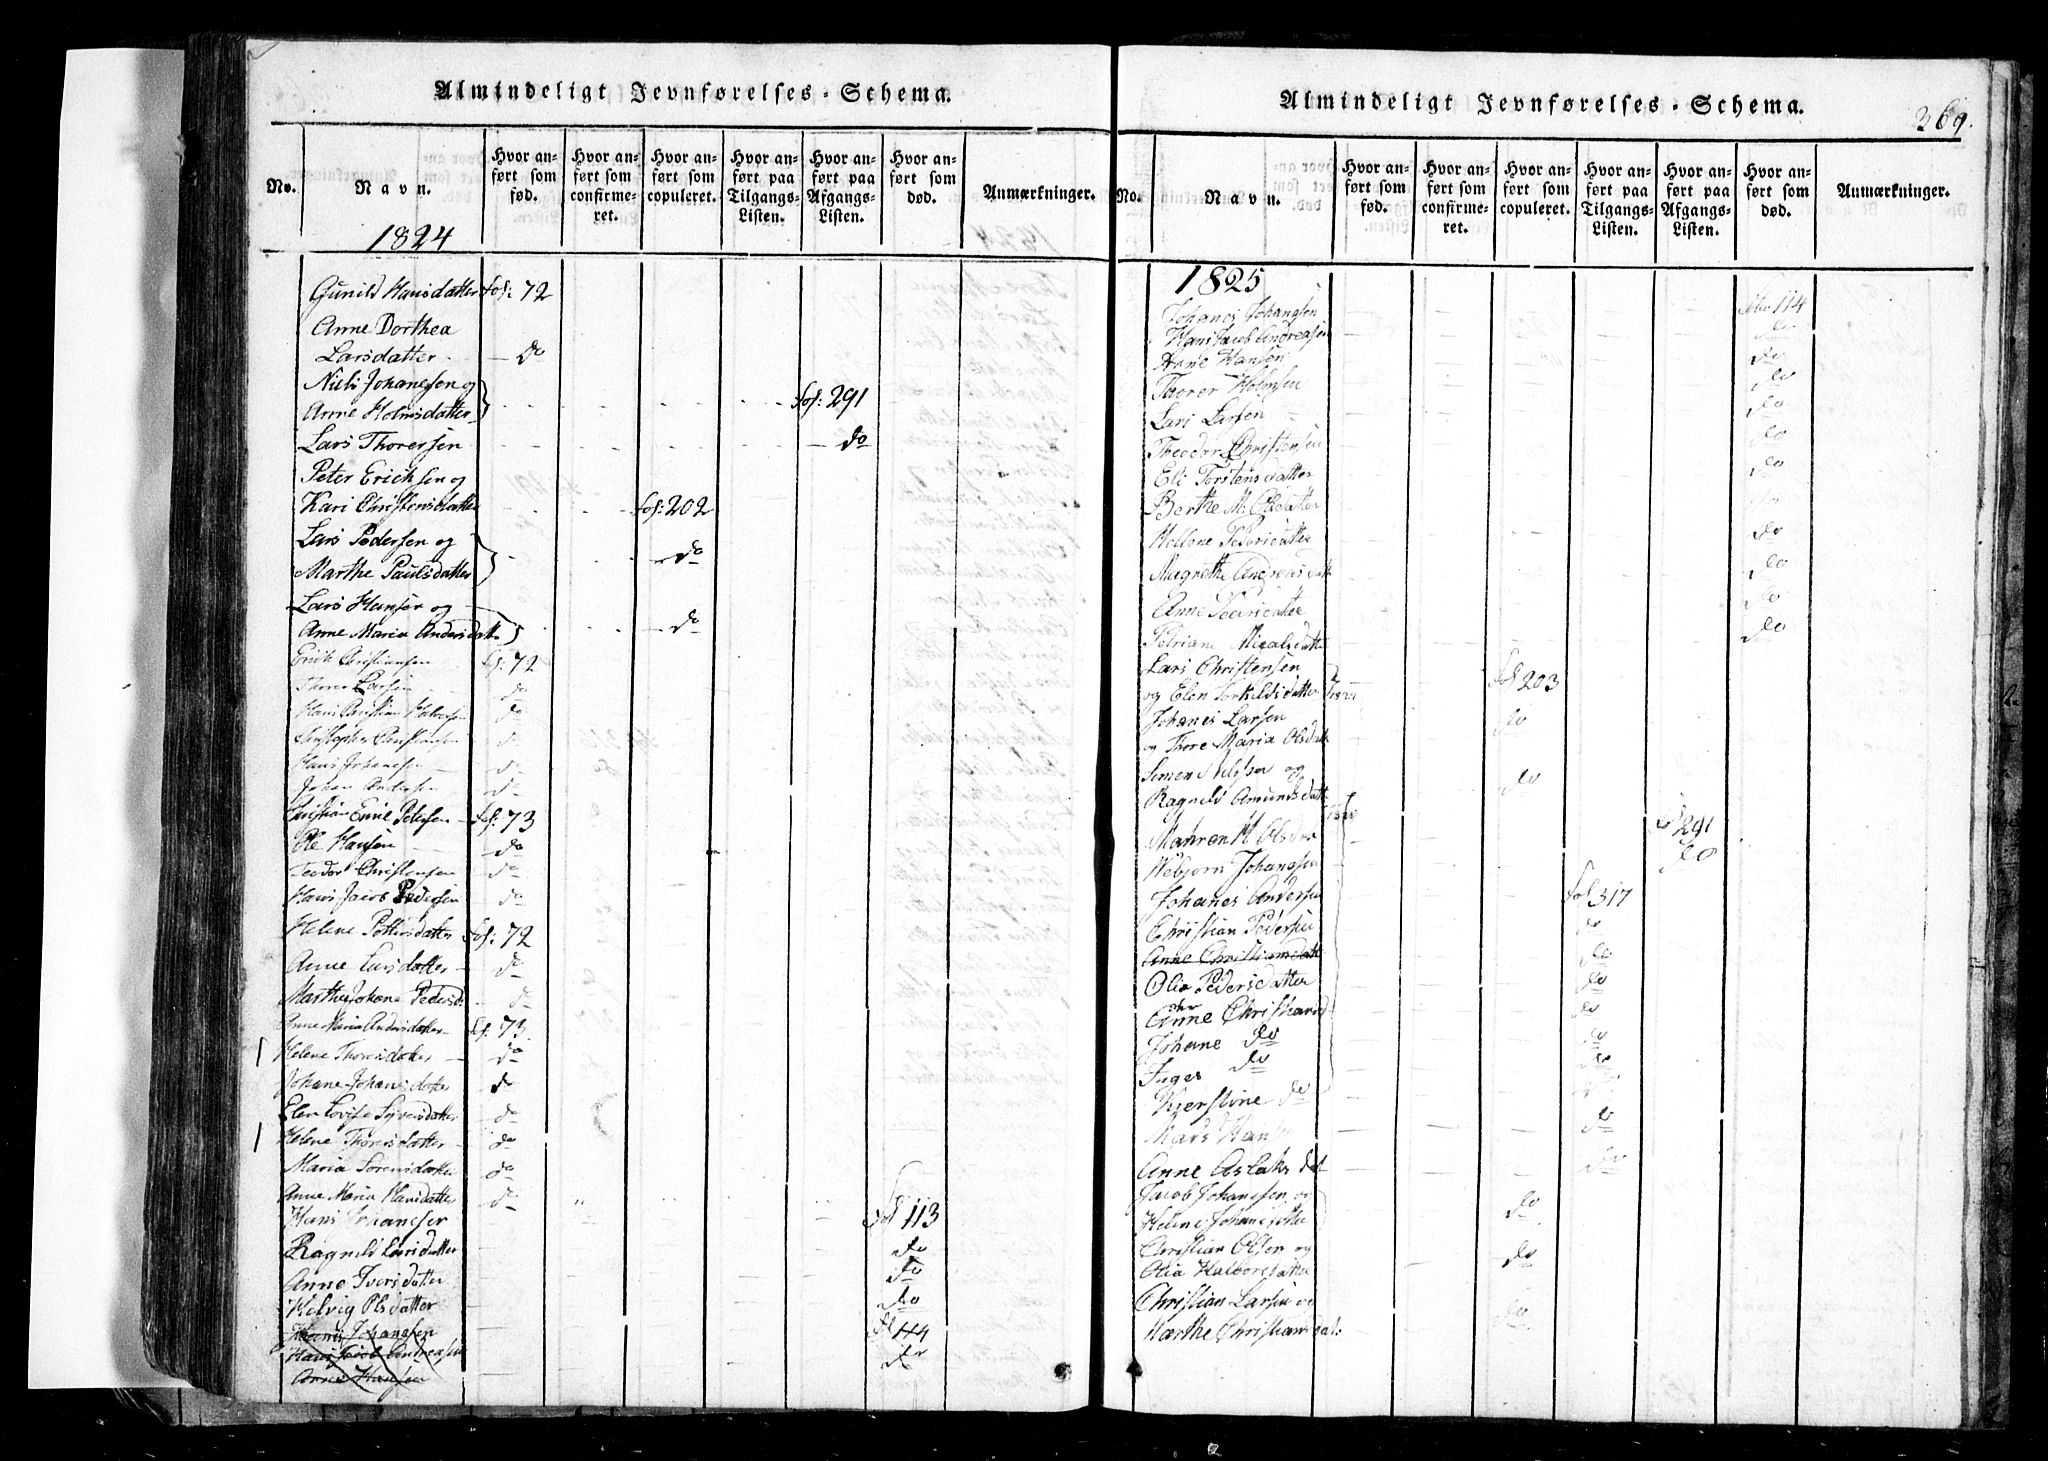 Almindeligt Jevnførelses-Schema.
No.
Navn.
Hvor anført som fød.
Hvor anført som confirmeret.
Hvor anført som copuleret.
Hvor anført paa Tilgangs-Listen.
Hvor anført paa Afgangs-Listen.
Hvor anført som død.
Anmærkninger.
1824
Gunild Hansdatter fol: 72
Anne Dorthea
Larsdatter - do
Niels Johanesen og
Anne Holmsdatter fol: 291
Lars Thoresen - do
Peter Ericksen og
Kari Christensdatter fol: 202
Lars Pedersen og
Marthe Paulsdatter do
Lars Hansen og
Anne Maria Andersdatt do
Erick Christiansen fol: 72
Thorer Larsen do
Hans Christian Halvorsen do
Christopher Christiansen do
Hans Johanesen do
Johan Andersen do
Christian Enné Petersen fol: 73
Ole Hansen do
Teodor Christensen do
Hans Jacob Pedersen do
Helene Pettersdatter fol: 72
Anne Larsdatter do
Marthe Johane Pedersd do
Anne Maria Andersdatter fol: 73
Helene Thoresdatter do
Johane Johanesdatter do
Elen Lovise Syversdatter do
Helene Thoresdatter do
Maria Sørensdatter do
Anne Maria Hansdatter do
Hans Johanesen fol 113
Ragnild Larsdatter do
Anne Iversdatter do
Helvig Olsdatter do
Johanes Johanesen fol 114
Hans Jacob Andreasen do
Anne Hansen
Almindeligt Jevnførelses-Schema.
369.
No.
Navn.
Hvor anført som fød.
Hvor anført som confirmeret.
Hvor anført som copuleret.
Hvor anført paa Tilgangs-Listen.
Hvor anført paa Afgangs-Listen.
Hvor anført som død.
Anmærkninger.
1825
Johanes Johanesen 114
Hans Jacob Andreasen do
Arne Hansen do
Thorer Holmsen do
Lars Larsen do
Theodor Christensen do
Eli Torstensdatter do
Berthe M. Olsdatter
Hellene Pedersdatter do
Magrethe Andreasdatt do
Anne Pedersdatter do
Petriane Nicalsdatter do
Lars Christensen
og Elen Torkildsdatter fol 203
Johanes Larsen do
og Thore Maria Olsdatt
Simen Nilsen og do
Ragnild Amundsdatt
Mahren M. Olsdatt 291
Webjørn Johanesen do
Johanes Andersen fol 317
Christian Pedersen do
Anne Christiansdatt do
Olia Pedersdatter do
Anne Christiansd do
Johane do do
Inger do do
Kjerstine do
Mads Han do
Anne Aslaksdat do
Jacob Johanesen og
Helene Johanesdatter do
Christian Olsen og do
Olia Halvorsdatter
Christian Larsen og do
Marthe Christiansdat: